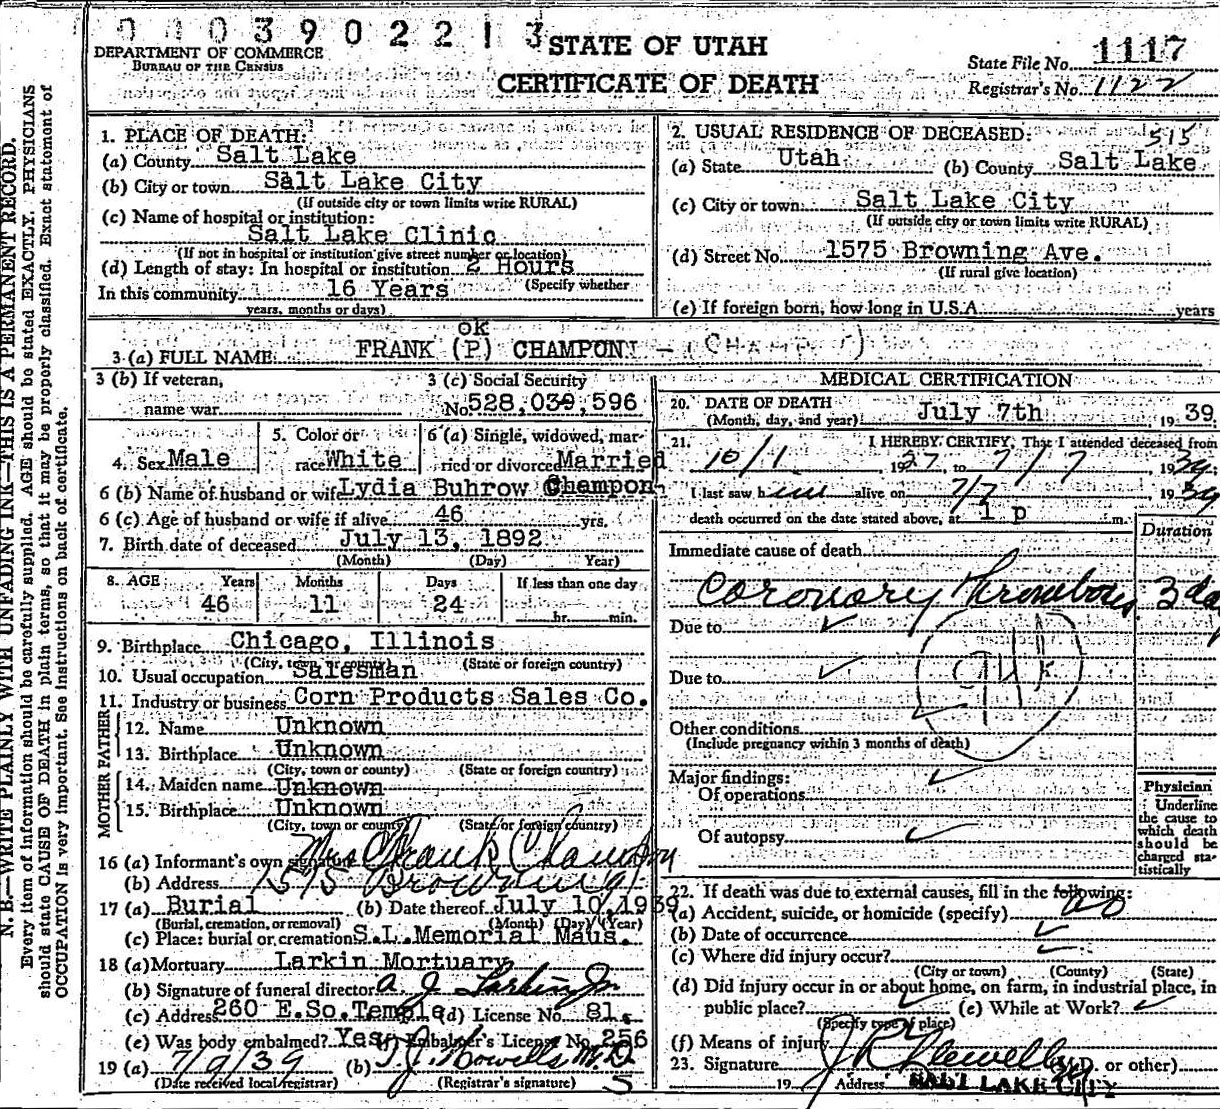 0403902213
DEPARTMENT OF COMMERCE
BUREAU OF THE CENSUS
STATE OF UTAH
CERTIFICATE OF DEATH
State File No. 1117
Registrar's No. 1122
N. B.—WRITE PLAINLY WITH UNFADING INK—THIS IS A PERMANENT RECORD.
Every item of information should be carefully supplied. AGE should be stated EXACTLY. PHYSICIANS
should state CAUSE OF DEATH in plain terms, so that it may be properly classified. Exact statement of
OCCUPATION is very important. See instructions on back of certificate.
1. PLACE OF DEATH:
(a) County Salt Lake
(b) City or town Salt Lake City
(If outside city or town limits write RURAL)
(c) Name of hospital or institution:
Salt Lake Clinic
(If not in hospital or institution give street number or location)
(d) Length of stay: In hospital or institution 2 Hours
(Specify whether
In this community 16 Years
years, months or days)
2. USUAL RESIDENCE OF DECEASED: 515
(a) State Utah (b) County Salt Lake
(c) City or town Salt Lake City
(If outside city or town limits write RURAL)
(d) Street No. 1575 Browning Ave.
(If rural give location)
(e) If foreign born, how long in U.S.A. years
ok
3 (a) FULL NAME: FRANK (P) CHAMPON
3 (b) If veteran,
name war
3 (c) Social Security
No. 528,039,596
4. Sex Male
5. Color or
race White
6 (a) Single, widowed, mar-
ried or divorced Married
6 (b) Name of husband or wife Lydia Buhrow Champon
6 (c) Age of husband or wife if alive 46 yrs.
7. Birth date of deceased July 13, 1892
(Month) (Day) Year)
8. AGE Years Months Days If less than one day
46 11 24 hr. min.
9. Birthplace Chicago, Illinois
(City, town or county) (State or foreign country)
10. Usual occupation Salesman
11. Industry or business Corn Products Sales Co.
FATHER
12. Name Unknown
13. Birthplace Unknown
(City, town or county) (State or foreign country)
MOTHER
14. Maiden name Unknown
15. Birthplace Unknown
(City, town or county) (State or foreign country)
16 (a) Informant's own signature Mrs Frank Champon
(b) Address 1575 Browning
17 (a) Burial (b) Date thereof July 10, 1939
(Burial, cremation, or removal) (Month) (Day) (Year)
(c) Place: burial or cremation S.L. Memorial Maus.
18 (a) Mortuary Larkin Mortuary
(b) Signature of funeral director A. J. Larkin Jr
(c) Address 260 E.So.Temple (d) License No. 81
(e) Was body embalmed? Yes (f) Embalmer's License No. 256
19 (a) 7/9/39 (b) T. J. Howells M.D.
(Date received local registrar) (Registrar's signature) S
MEDICAL CERTIFICATION
20. DATE OF DEATH
(Month, day, and year) July 7th 1939
21. I HEREBY CERTIFY, That I attended deceased from
10/1 1927, to 7/7, 1939
I last saw him alive on 7/7 1939
death occurred on the date stated above, at 1 p m.
Duration
Immediate cause of death
Coronary Thrombosis 3 da
Due to
Due to
Other conditions
(Include pregnancy within 3 months of death)
Major findings:
Of operations
Of autopsy
Physician
Underline
the cause to
which death
should be
charged sta-
tistically
22. If death was due to external causes, fill in the following:
(a) Accident, suicide, or homicide (specify) no
(b) Date of occurrence
(c) Where did injury occur?
(City or town) (County) (State)
(d) Did injury occur in or about home, on farm, in industrial place, in
public place? (e) While at Work?
(Specify type of place)
(f) Means of injury
23. Signature (M.D. or other)
19 Address SALT LAKE CITY